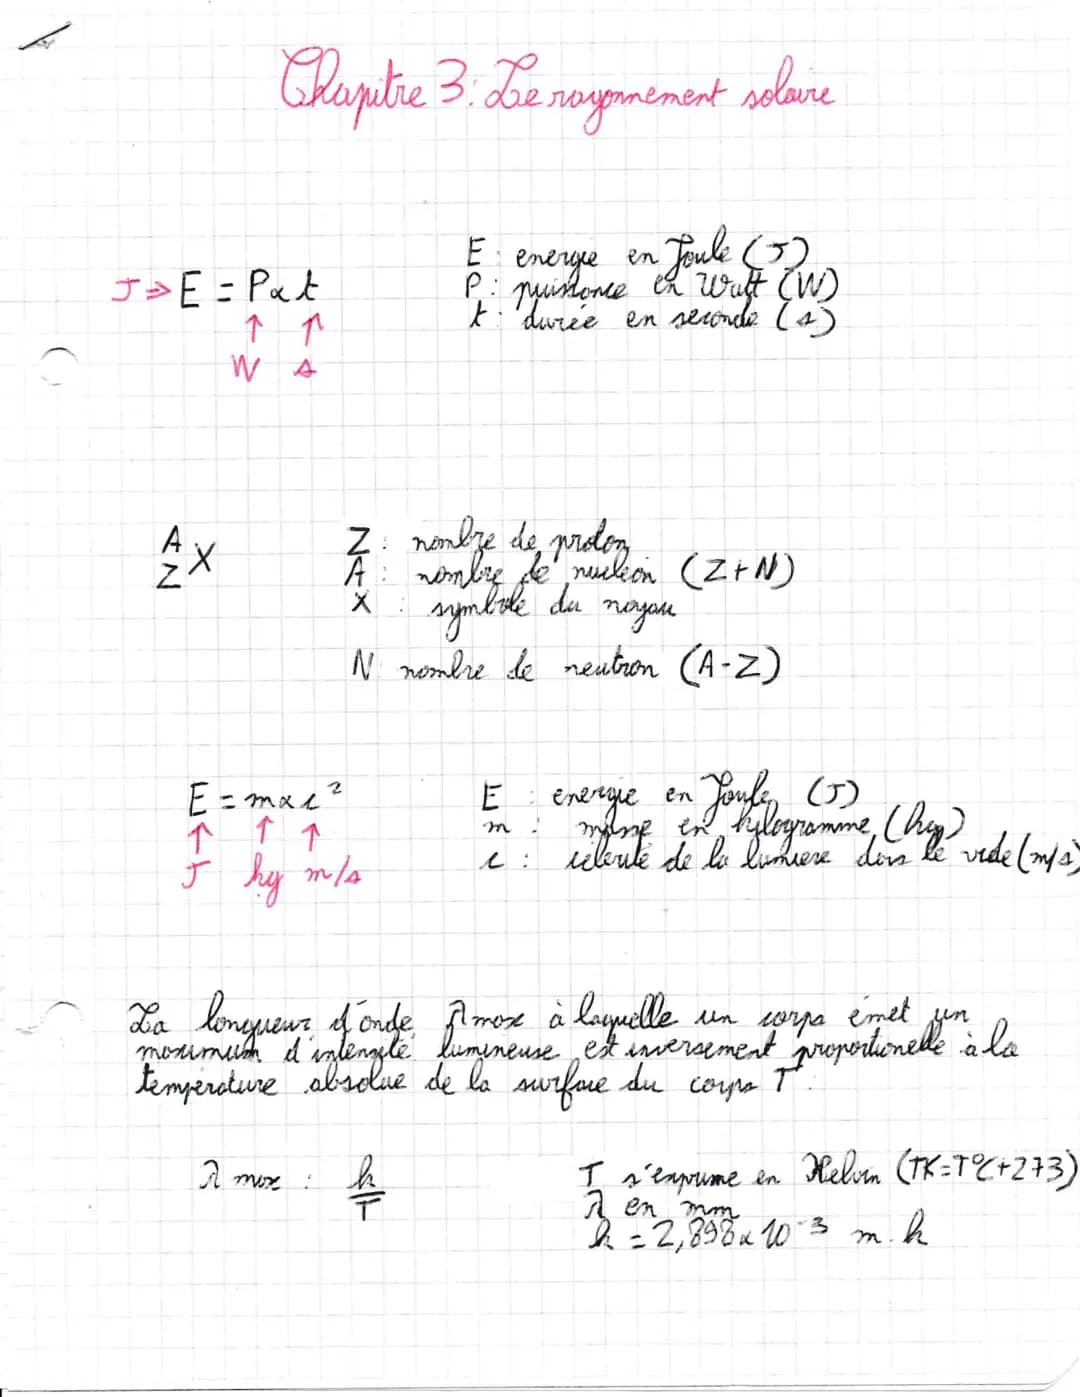 Chapitre 3: Le rayonnement solaire
J ⇒ E = P x t
↑ ↑
W s
E : energie en Joule (J)
P : puissance en Watt (W)
t : durée en seconde (s)
A
Z X
Z : nombre de proton
A : nombre de nucléon (Z+N)
X : symbole du noyau
N : nombre de neutron (A-Z)
E = m x c²
↑ ↑ ↑
J kg m/s
E : energie en Joule (J)
m : masse en kilogramme (kg)
c : célérité de la lumiere dans le vide (m/s)
La longueur d'onde λ max à laquelle un corps émet un
maximum d'intensité lumineuse est inversement proportionelle à la
température absolue de la surface du corps T.
λ max : k
T
T s'exprime en Kelvin (TK=T°C+273)
λ en mm
k = 2,898 x 10⁻³ m.k